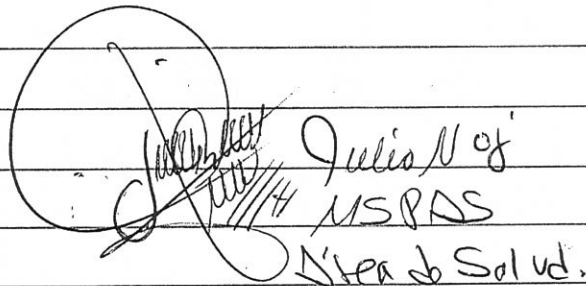 Julio Noj
MSPAS
Área de Salud.